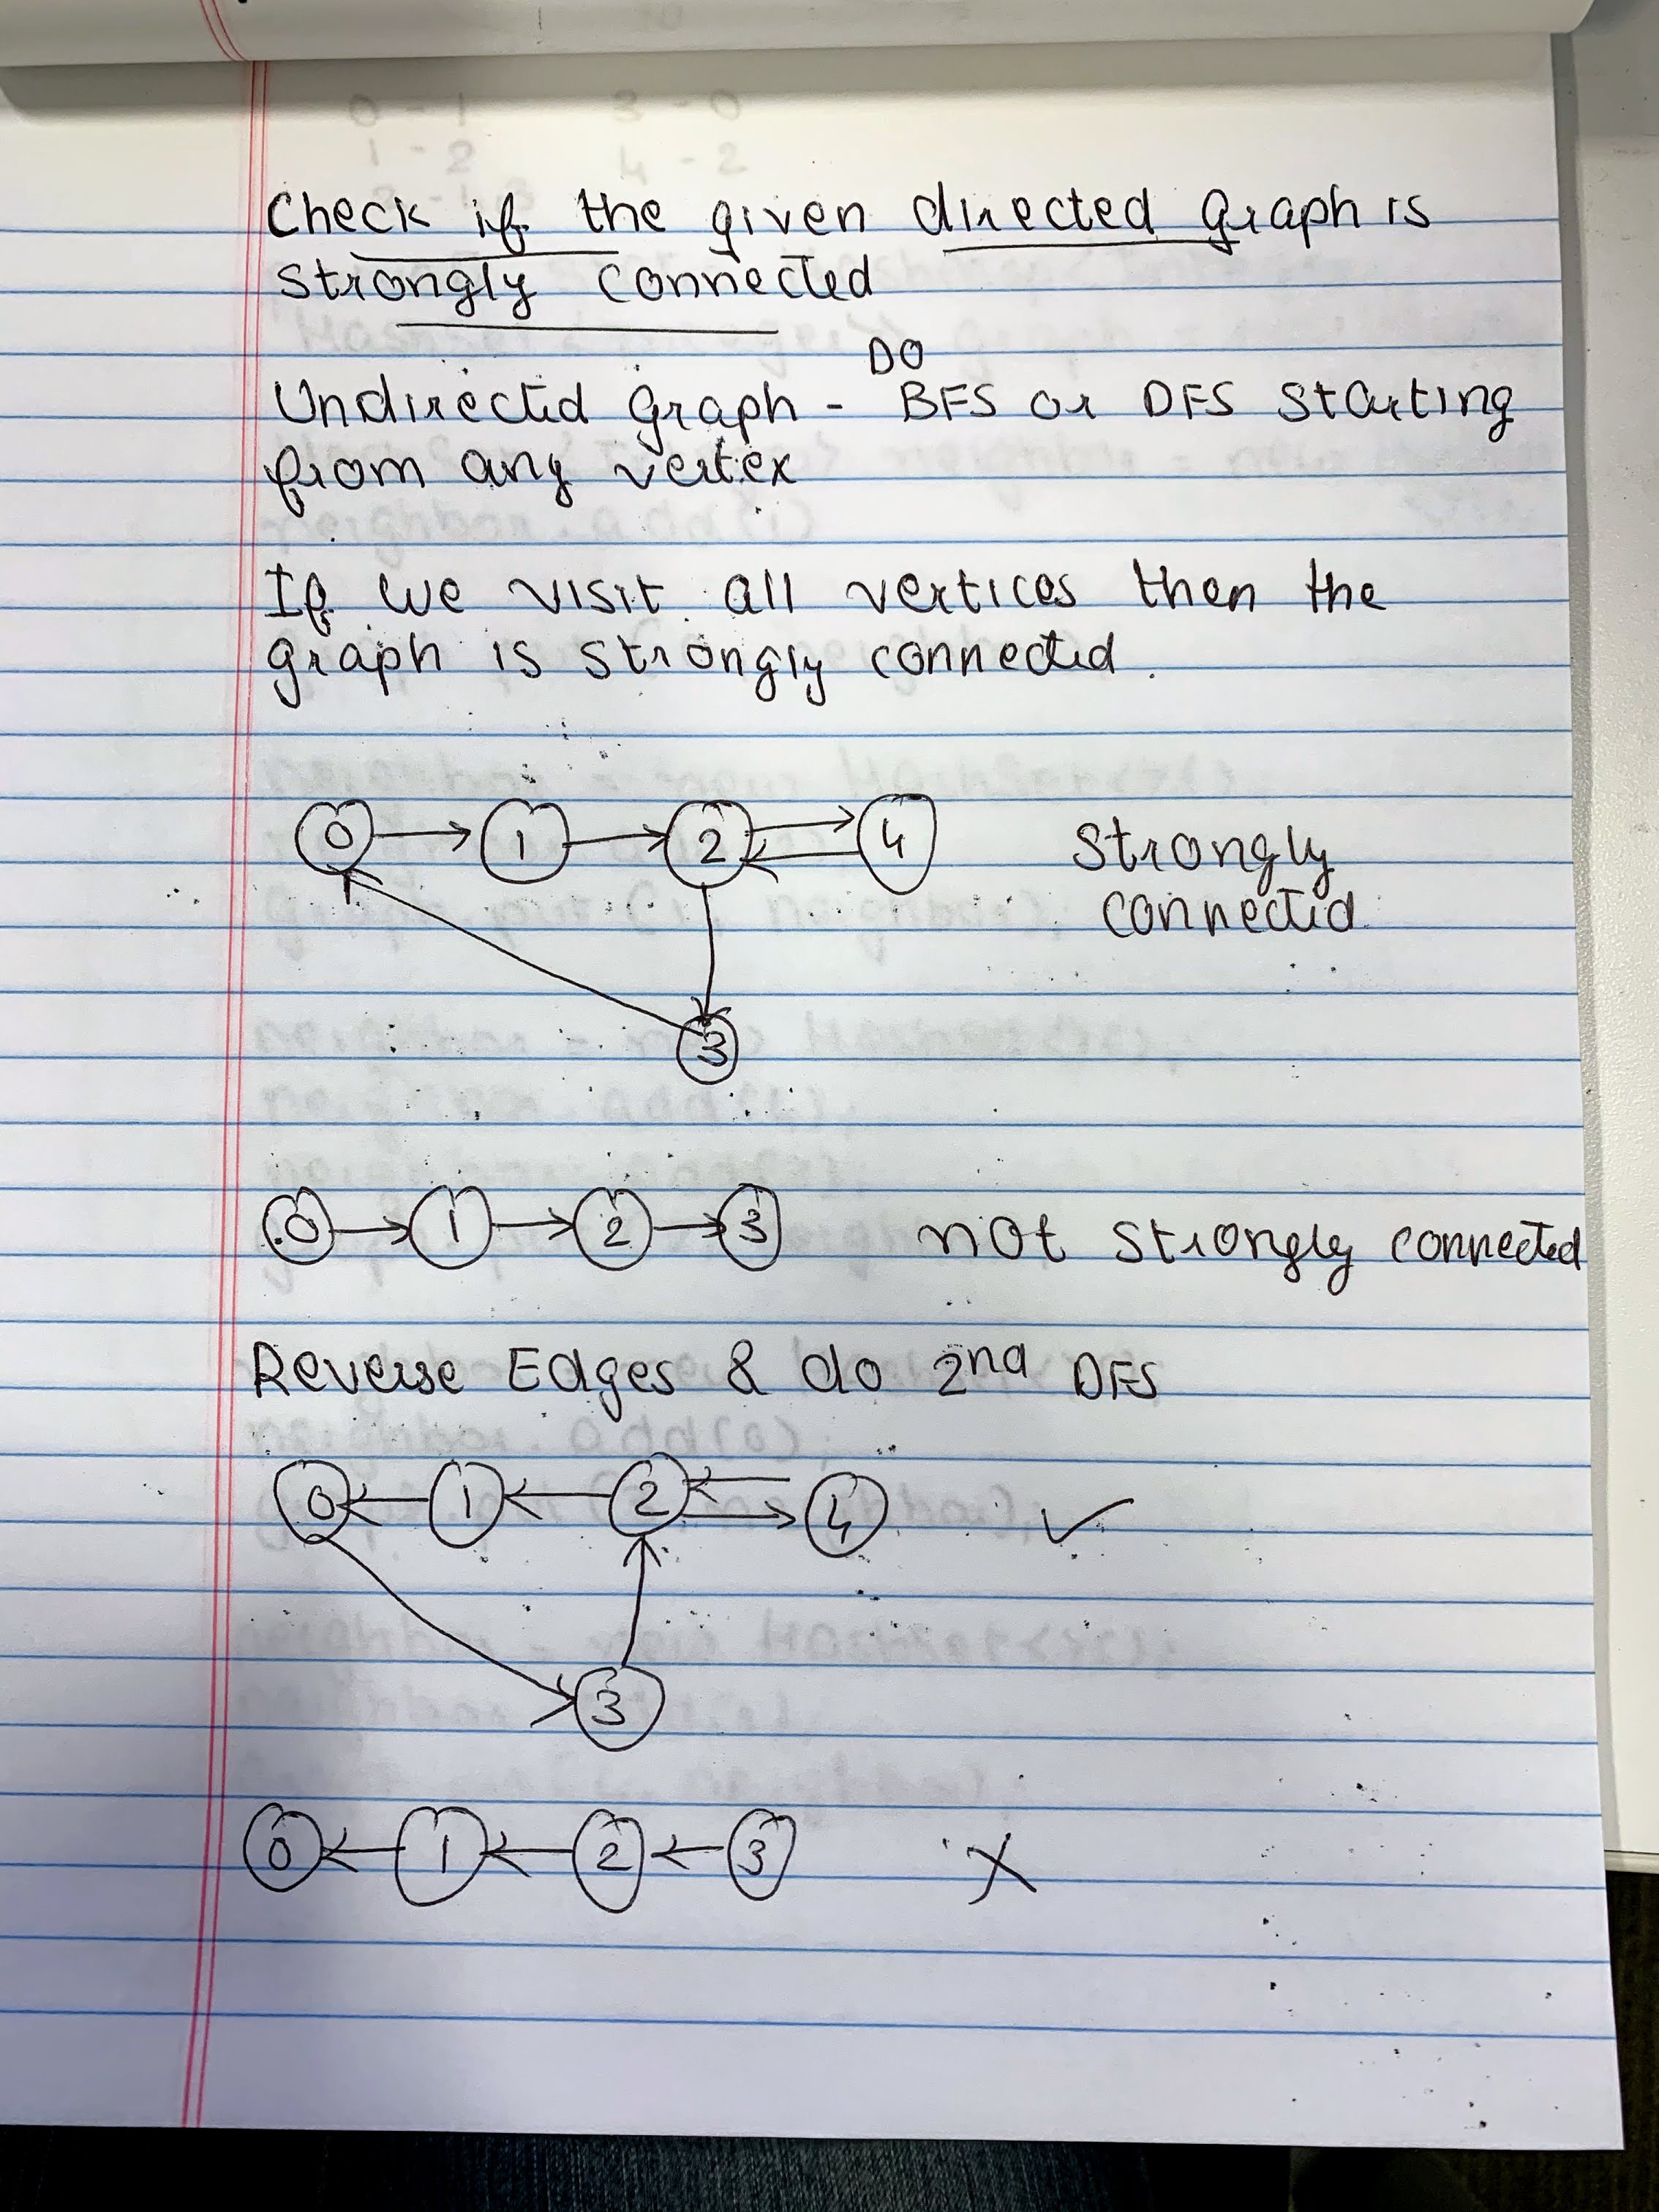 Check if the given directed graph is
strongly connected
DO
Undirected graph - BFS or DFS starting
from any vertex
If we visit all vertices then the
graph is strongly connected.
0 1 2 4 Strongly
connected
3
0 1 2 3 not strongly connected
Reverse Edges & do 2nd DFS
0 1 2 4 ✓
3
0 1 2 3 X